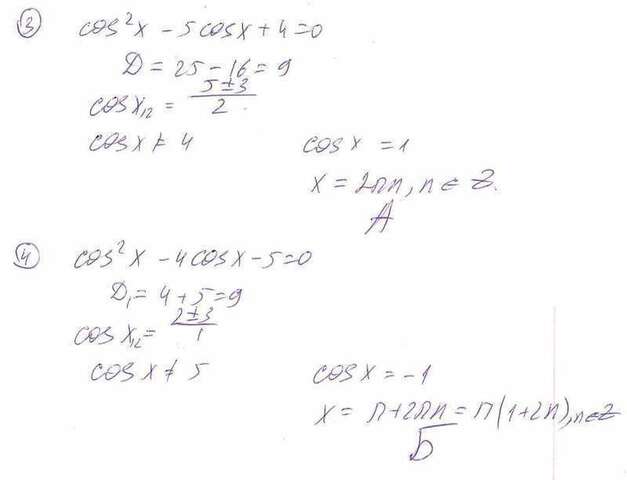 ③ cos²x - 5cosx + 4 = 0
D = 25 - 16 = 9
cosx₁₂ = (5±3)/2
cosx ≠ 4
cosx = 1
x = 2πn, n ∈ Z.
А
④ cos²x - 4cosx - 5 = 0
D₁ = 4 + 5 = 9
cosx₁₂ = (2±3)/1
cosx ≠ 5
cosx = -1
x = π + 2πn = π(1+2n), n ∈ Z
Б